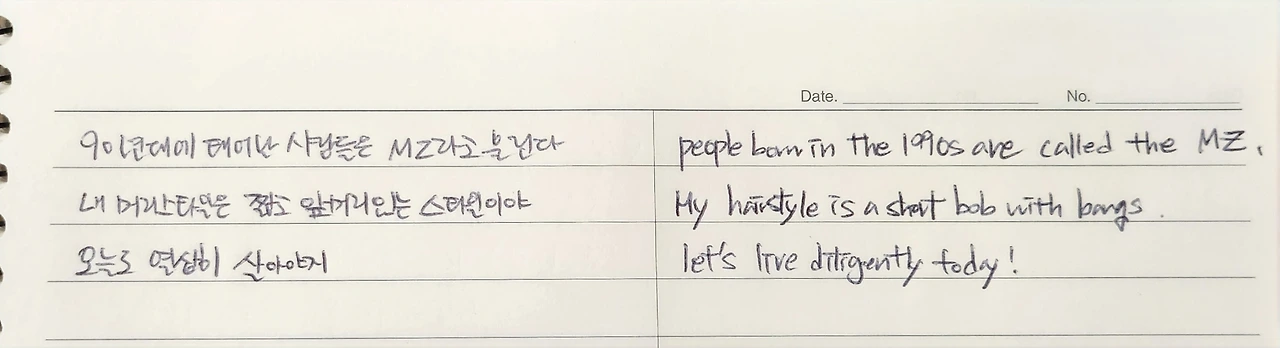 Date. No.
90년대에 태어난 사람들은 MZ라고 불린다 people born in the 1990s are called the MZ.
내 머리스타일은 짧고 앞머리있는 스타일이야 My hairstyle is a short bob with bangs.
오늘도 열심히 살아야지 let's live diligently today!